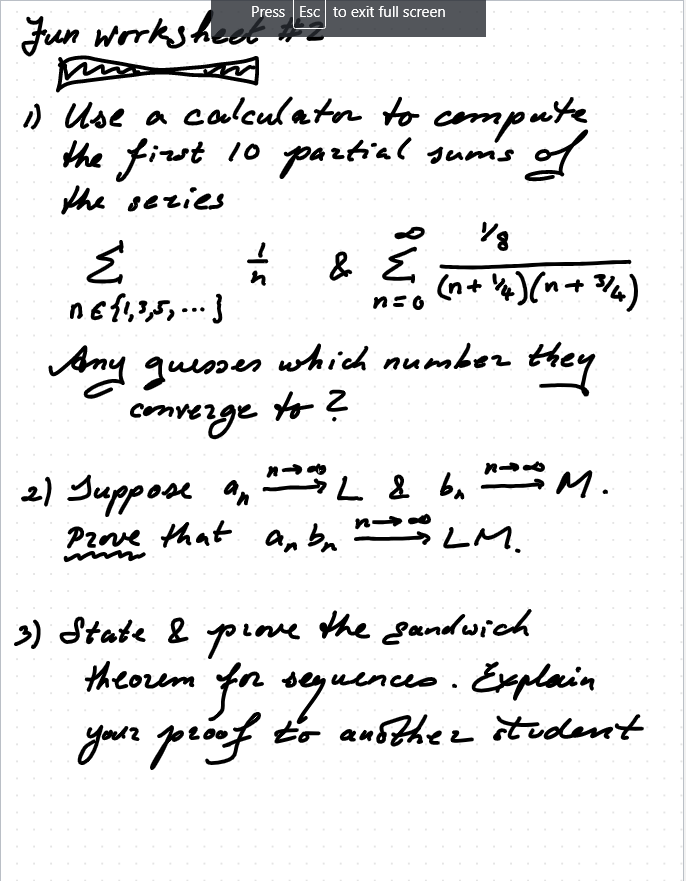 Press Esc to exit full screen
Fun worksheet #2
1) Use a calculator to compute
the first 10 partial sums of
the series
∑ n∈{1,3,5,...} 1/n & ∑ n=0 ∞ 1/8 / (n+1/4)(n+3/4)
Any guesses which number they
converge to?
2) Suppose aₙ n→∞ ⟶ L & bₙ n→∞ ⟶ M.
Prove that aₙ bₙ n→∞ ⟶ LM.
3) State & prove the sandwich
theorem for sequences. Explain
your proof to another student